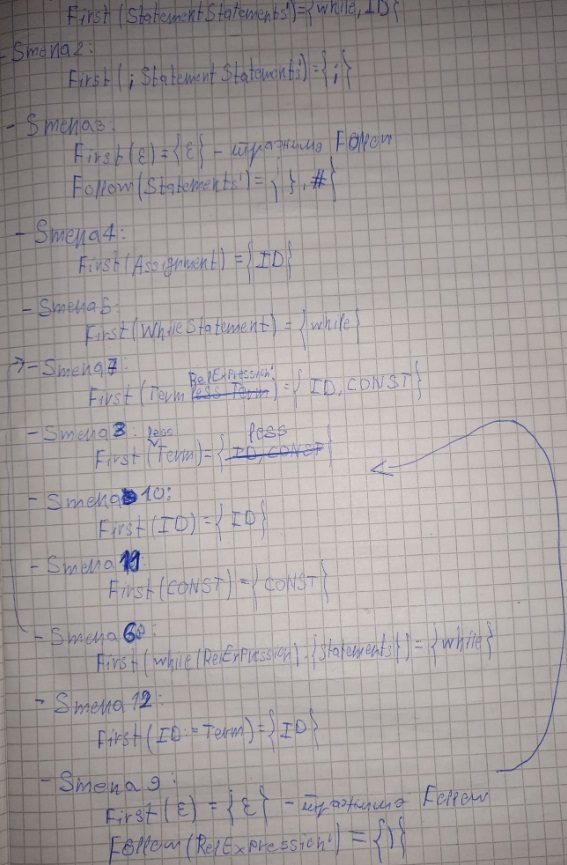 First(StatementStatements')={while,ID}
- Smena2:
First(; StatementStatements')={;}
- Smena3:
First(ε)={ε} - tražimo Follow
Follow(Statements')={ }, #}
- Smena4:
First(Assignment)={ID}
- Smena5:
First(WhileStatement)={while}
- Smena7:
RelExpression'
First(Term less Term)={ID,CONST}
- Smena8:
less less
First(Term)={ID,CONST}
- Smena10:
First(ID)={ID}
- Smena11
First(CONST)={CONST}
- Smena6:
First(while(RelExpression){Statements})={while}
- Smena12:
First(ID:=Term)={ID}
- Smena9:
First(ε)={ε} - tražimo Follow
Follow(RelExpression')={)}